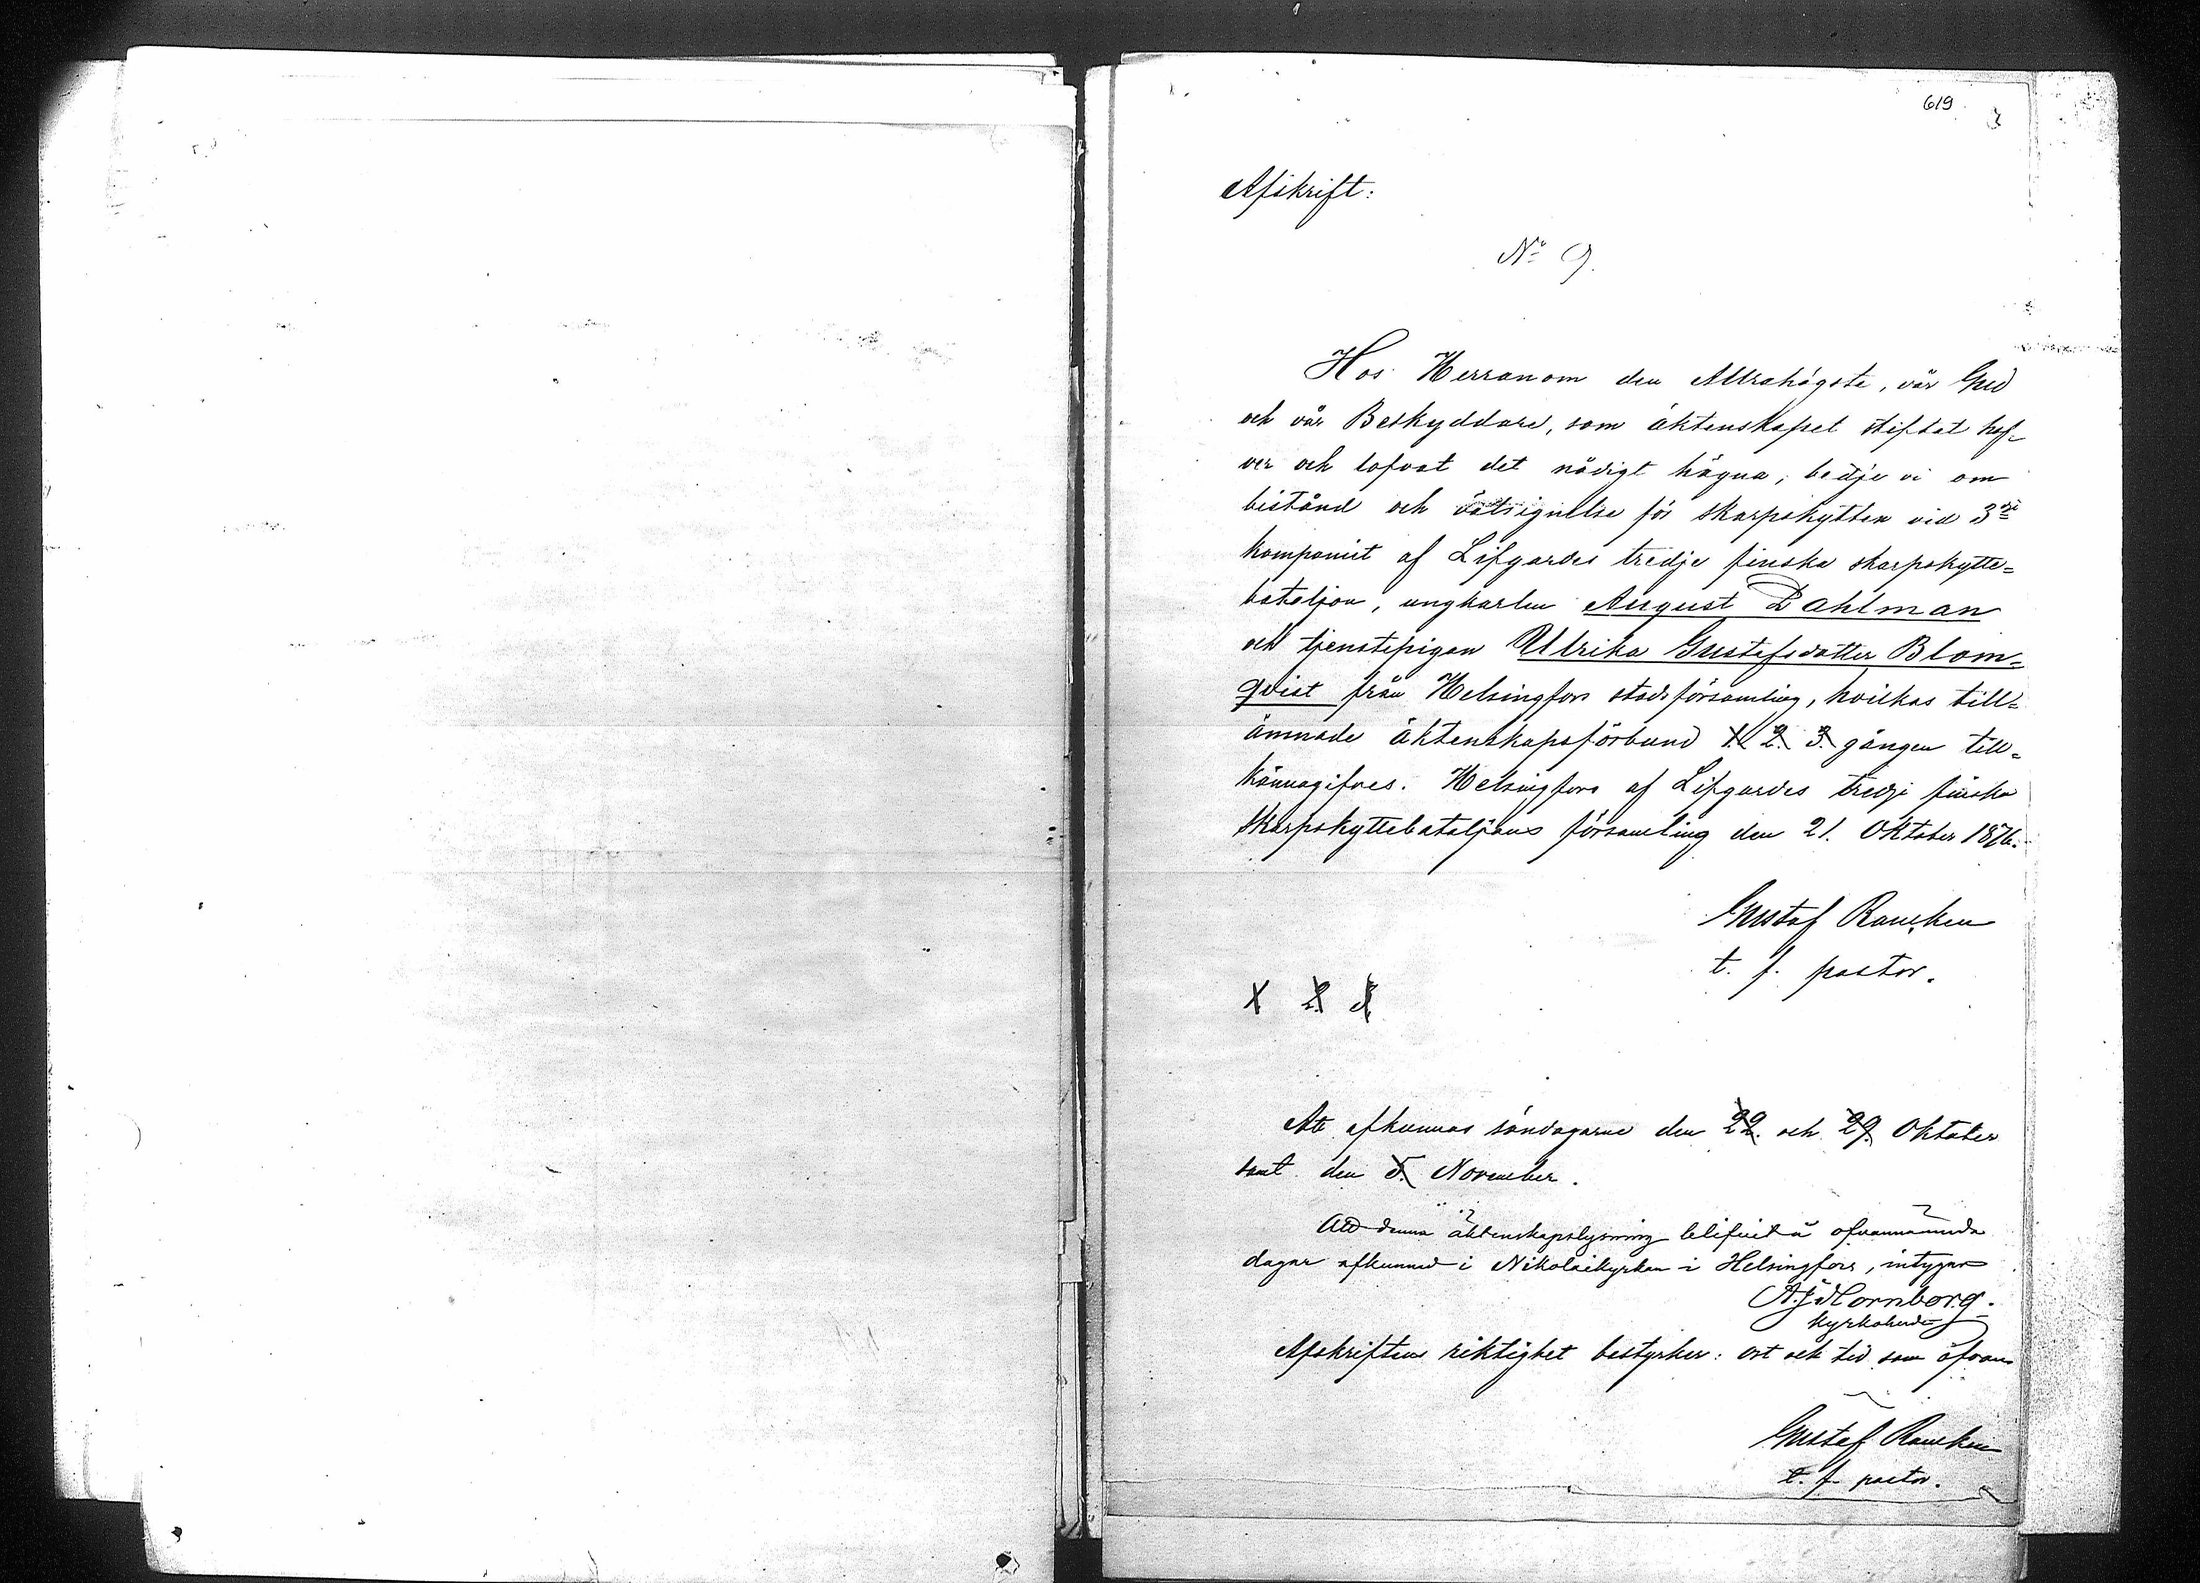 619
Afskrift:
No 9.
Hos Herranom den Allrahögste, vår Gud
och vår Beskyddare, som äktenskapet stiftat haf-
ver och lofvat det nådigt hägna, bedje vi om
bistånd och välsignelse för skarpskytten vid 3dje
kompaniet af Lifgardes tredje finska skarpskytte=
bataljon, ungkarlen August Dahlman
och tjenstepigan Ulrika Gustafsdotter Blom=
qvist från Helsingfors stadsförsamling, hvilkas till=
ämnade äktenskapsförbund 1. 2. 3. gången till=
kännagifves. Helsingfors af Lifgardes tredje finska
skarpskyttebataljons församling den 21. Oktober 1876.
Gustaf Rancken
t. f. pastor.
1 2 3
Att afkunnas söndagarne den 22. och 29. Oktober
samt den 5. November.
Att denna äktenskapslysning blifvit å ofvannämnda
dagar afkunnad i Nikolaikyrkan i Helsingfors, intygar
A. J. Hornborg.
Kyrkoherde
Afskriftens riktighet bestyrker: ort och tid som ofvan
Gustaf Rancken
t. f. pastor.